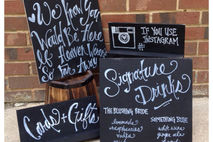 We Know You
Would Be Here
If Heaven Weren't
So Far Away
If You Use
INSTAGRAM
#
Signature
Drinks
THE BLUSHING BRIDE
lemonade
raspberries
vodka
SOMETHING BLUE
Cards & Gifts